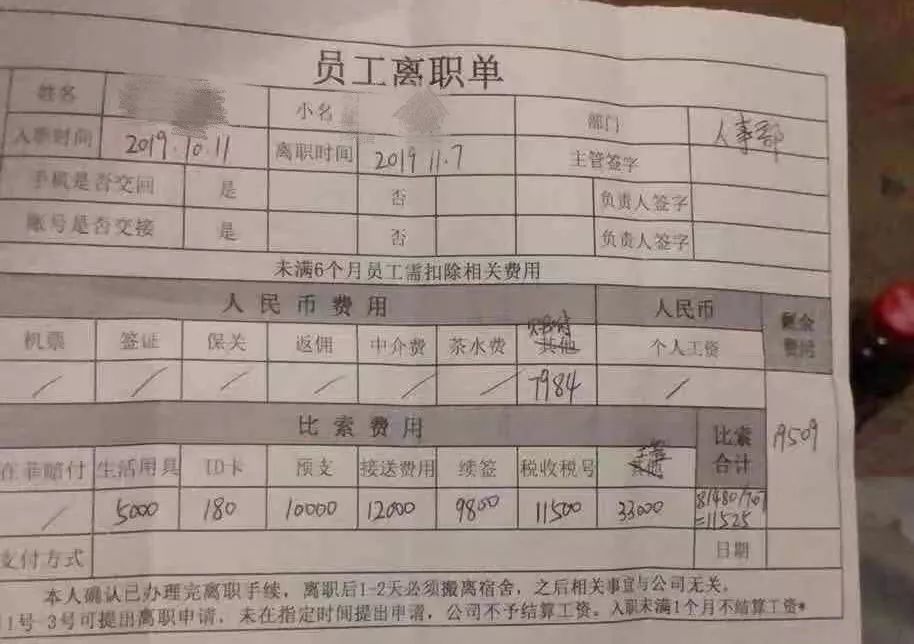 员工离职单
姓名 小名 部门 人事部
入职时间 2019.10.11 离职时间 2019 11.7 主管签字
手机是否交回 是 否 负责人签字
账号是否交接 是 否 负责人签字
未满6个月员工需扣除相关费用
人民币费用 人民币 剩余费用
机票 签证 保关 返佣 中介费 茶水费 其他 个人工资
/ / / / / / 7984 /
19509
比索费用 比索合计
在菲赔付 生活用具 ID卡 预支 接送费用 续签 税收税号
/ 5000 180 10000 12000 9800 11500 33000 81480/7.07=11525
支付方式 日期
本人确认已办理完离职手续，离职后1-2天必须搬离宿舍，之后相关事宜与公司无关。
1号-3号可提出离职申请，未在指定时间提出申请，公司不予结算工资。入职未满1个月不结算工资*